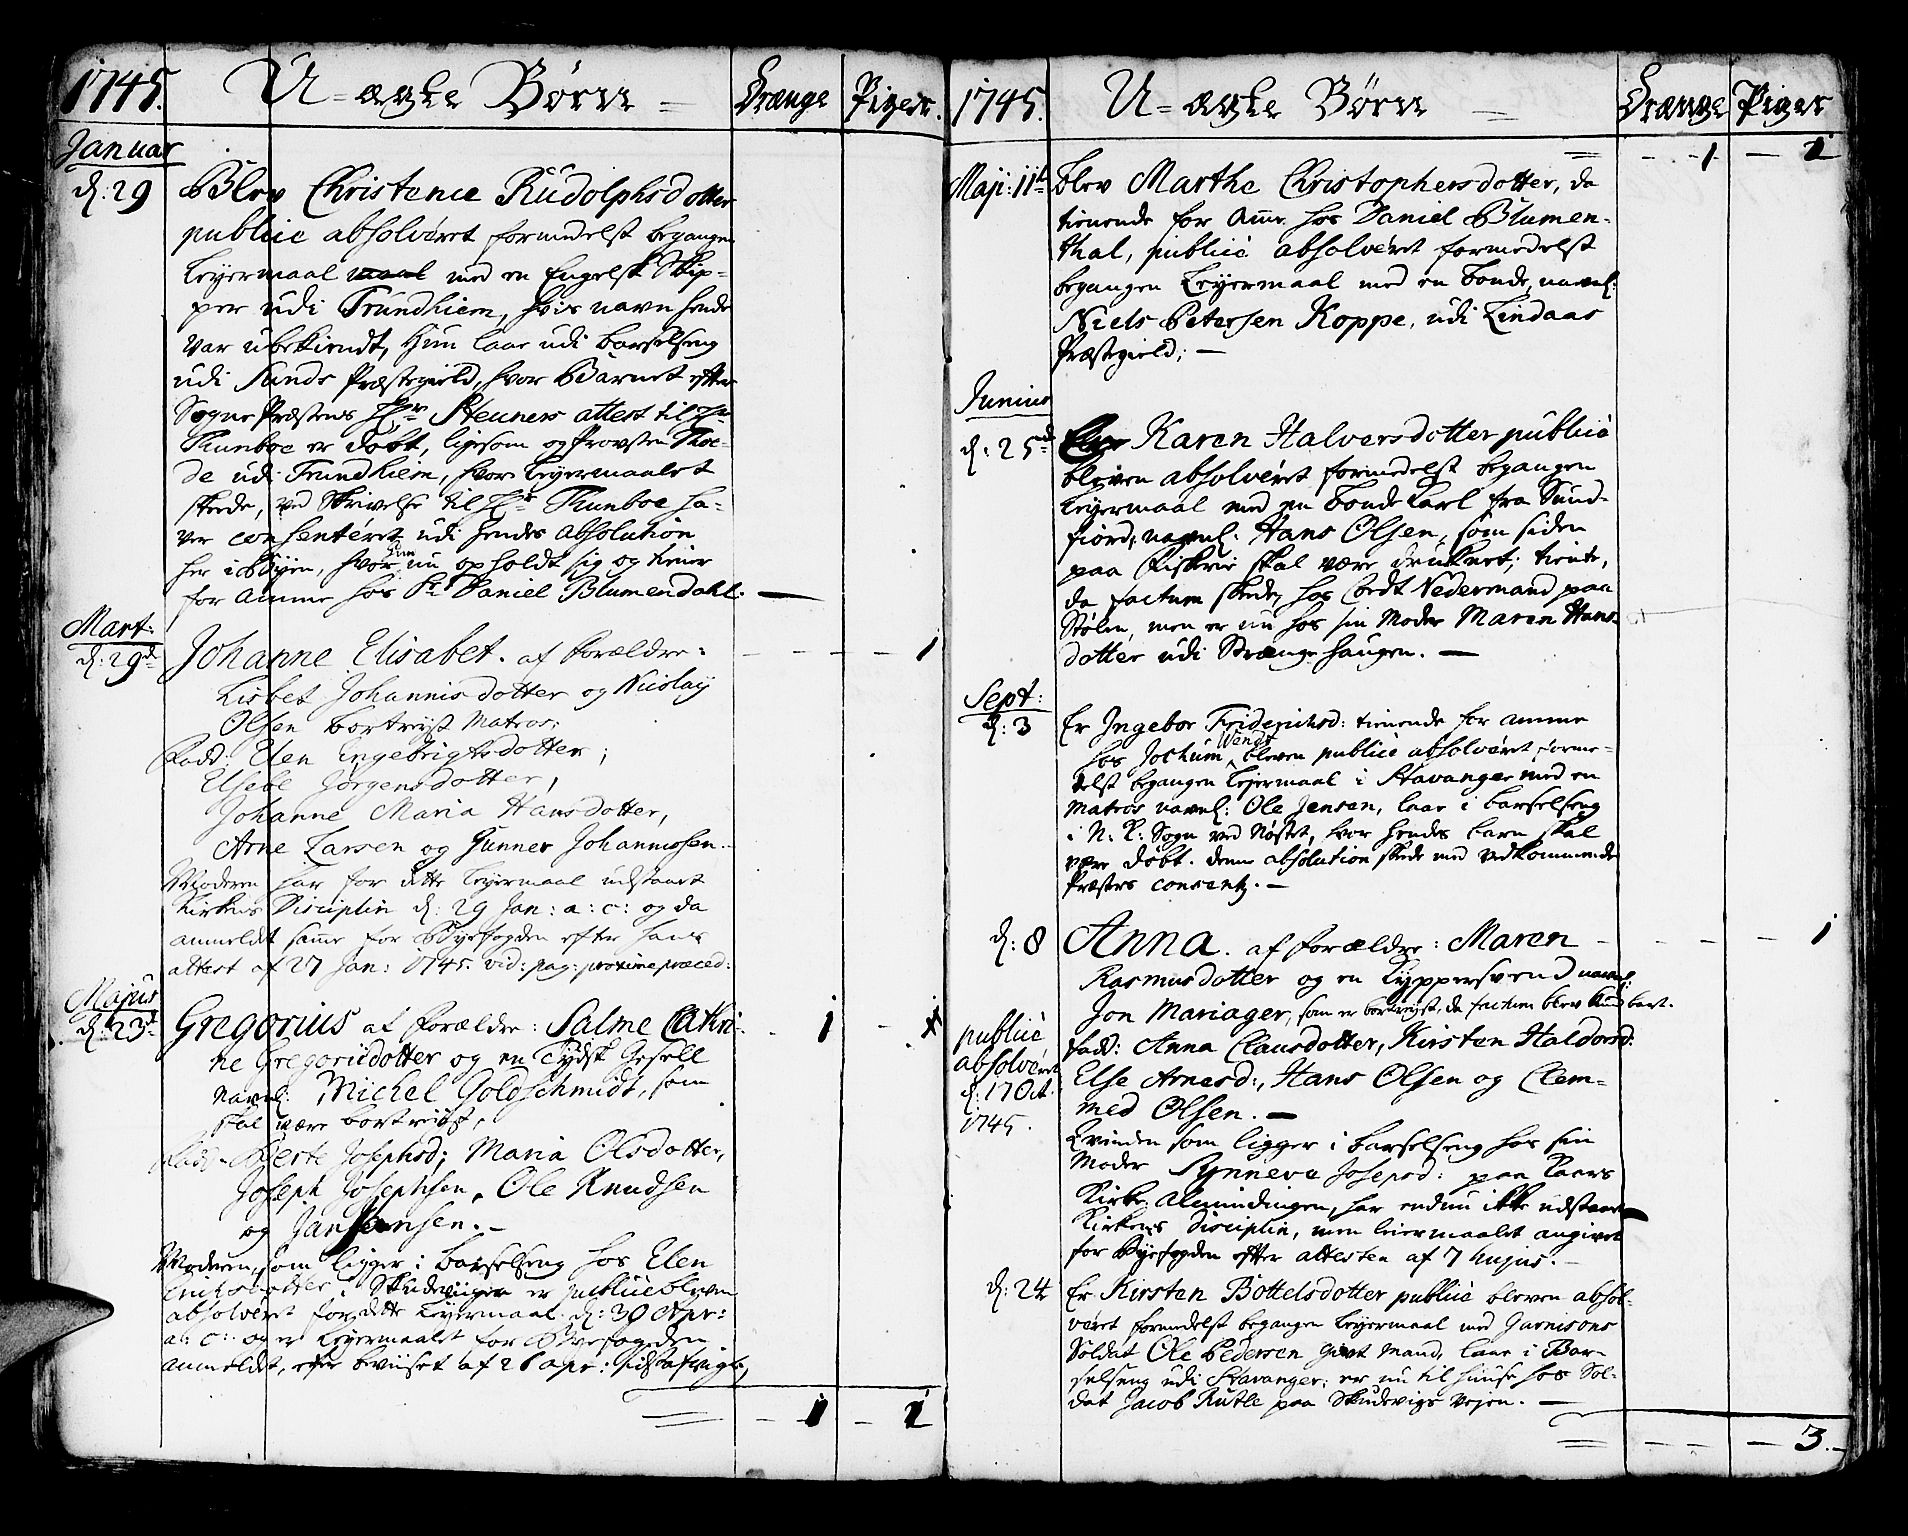 1745. U-ægte Børn Drænge Piger.
Januar
d: 29 Blev Christence Rudolphsdotter
publicè absolvéret formedelst begangen
Leyermaal med en Engelsk Skip-
per udi Trundhiem, hvis navn hende
var ubekiendt, Hun laae udi Barselseng
udi Sunds Præstegield, hvor Barnet efter
Sogne Præstens Hr Steuners attest til Hr
Thunboe er døbt, ligesom og Provsten Thoe-
de udi Trundhiem, hvor Leyermaalet
skeede, ved Skrivelse til Hr Thunboe ha-
ver consentéret udi hendes absolution
her i Byen, hvor hun nu opholdt sig og tiener
for Amme hos Sr Daniel Blumendahl. —
Mart:
d: 29d Johanne Elisabet. af Forældre: 1
Lisbet Johannisdotter og Nicolay
Olsen bortreyst Matros:
Fadd: Elen Engebrigtsdotter;
Elsebe Jørgensdotter,
Johanne Maria Hansdotter,
Arne Larsen og Gunner Johannissen.
Moderen har for dette Leyermaal udstaaet
Kirkens Disciplin d: 29 Jan: a: c: og da
anmeldt samme for Byefogden efter hans
attest af 27 Jan: 1745. vid: pag: proximè præced:
Majus
d: 23d Gregorius af Forældre: Salme Cathri- 1
ne Gregoriidotter og en Tydsk Gesell
navnl: Michel Goldschmidt, som
skal være bortreist,
Fadd: Berte Josephsd; Maria Olsdotter,
Joseph Josephsen, Ole Knudsen
og Jan Jansen. —
Moderen, som ligger i barselseng hos Elen
Erichsdotter i Skudeviigen er publicè bleven
absolvéret for dette Leyermaal d: 30 Apr:
a: c: og er Leyermaalet for Byefogden
anmeldt, efter beviiset af 26 apr: sidstafvigte,
1 1
1745. U-ægte Børn Drænge Piger
1 1
Maji: 11t blev Marthe Christophersdotter, da
tienende for Amme hos Daniel Blumen-
thal, publicè absolvéret formedelst
begangen Leyermaal med en Bonde, navnl:
Niels Petersen Koppe, udi Lindaas
Præstegield; —
Junius
d: 25d Er Karen Halversdotter publicè
bleven absolvéret formedelst begangen
Leyermaal med en Bonde Karl fra Sund-
fiord, navnl. Hans Olsen, som siden
paa Fiskrie skal være druknet; tiente,
da factum skede, hos Cordt Nedermand paa
Stølen, men er nu hos sin Moder Maren Hans-
dotter udi Strænge haugen. —
Sept:
d: 3 Er Ingebor Friderichsd: tienende for amme
hos Jochum Wendt bleven publicè absolvéret forme-
delst begangen Leiermaal i Stavanger med en
Matros navnl: Ole Jensen, laae i barselseng
i N: K: Sogn ved Nøstet, hvor hendes barn skal
være døbt. denne absolution skede med vedkommende
Præsters consentz. —
d: 8 Anna. af Forældre: Maren 1
Rasmusdotter og en Kyppersvend navnl:
Jon Mariager, som er bortreyst, da factum blev kundbart.
publicè
absolvéret
d: 17 Oct.
1745.
Fadd: Anna Clausdotter, Kirsten Haldorsd:
Else Arnesd:, Hans Olsen og Clem-
med Olsen. —
Kvinden som ligger i barselseng hos sin
Moder Synneve Josepsd: paa Kaars
Kirke Almindingen, har endnu ikke udstaaet
Kirkens disciplin, men leiermaalet angivet
for Byefogden efter attesten af 7 hujus. —
d: 24 Er Kirsten Bottelsdotter publicè bleven absol-
véret formedelst begangen Leyermaal med Garnisons
Soldat Ole Pedersen givt Mand, laae i Bar-
selseng udi Stavanger; er nu til Huuse hos Sol-
dat Jacob Rutle paa Skudevigs Vejen. —
3.